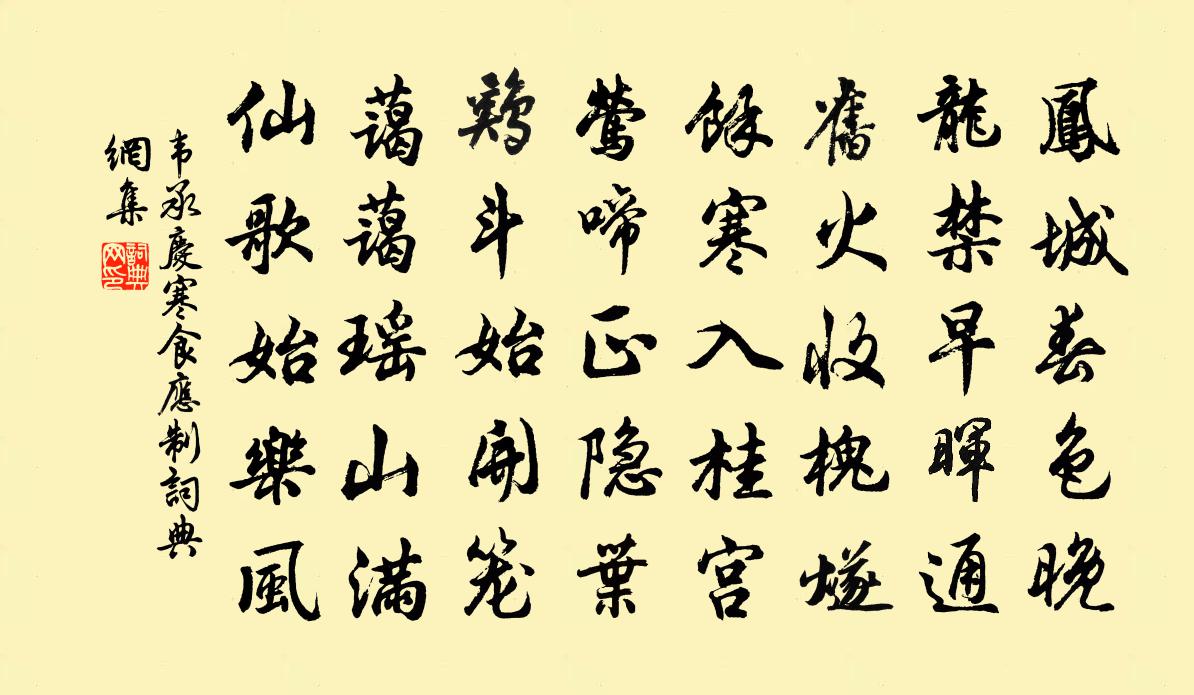 鳳城春色晚
龍禁早暉通
舊火收槐燧
餘寒入桂宮
鶯啼正隐葉
鷄斗始開笼
藹藹瑶山满
仙歌始樂風
韦承慶寒食應制詞典
網集
詞典网印